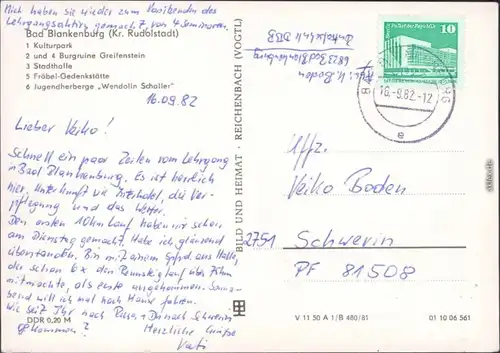 Mich haben sie wieder zum Vorsitzenden des
Lehrgangsaktivs gemacht von 4 Seminaren.
Bad Blankenburg (Kr. Rudolstadt)
1 Kulturpark
2 und 4 Burgruine Greifenstein
3 Stadthalle
5 Fröbel-Gedenkstätte
6 Jugendherberge „Wendolin Schaller"
16.09.82
Lieber Veiko!
Schnell ein paar Zeilen vom Lehrgang
in Bad Blankenburg. Es ist herrlich
hier, Unterkunft wie Interhotel, die Ver-
pflegung und das Wetter.
Den ersten 10km Lauf haben wir schon
am Dienstag gemacht. Habe ich glänzend
überstanden. Bin mit einem Gfrd. aus Halle,
der schon 6x den Rennsteiglauf über
mitmachte, als erste angekommen. Sonna-
bend will ich mal nach Hause fahren.
Wie seit Ihr nach und nach Schwerin
gekommen? Herzliche Grüße
DDR 0,20 M
BILD UND HEIMAT · REICHENBACH (VOGTL)
Boden
6823 Bad Blankenburg
10
16.-9.82.-12
e
Uffz.
Veiko Boden
2751 Schwerin
PF 81508
V 11 50 A 1/B 480/81
01 10 06 561